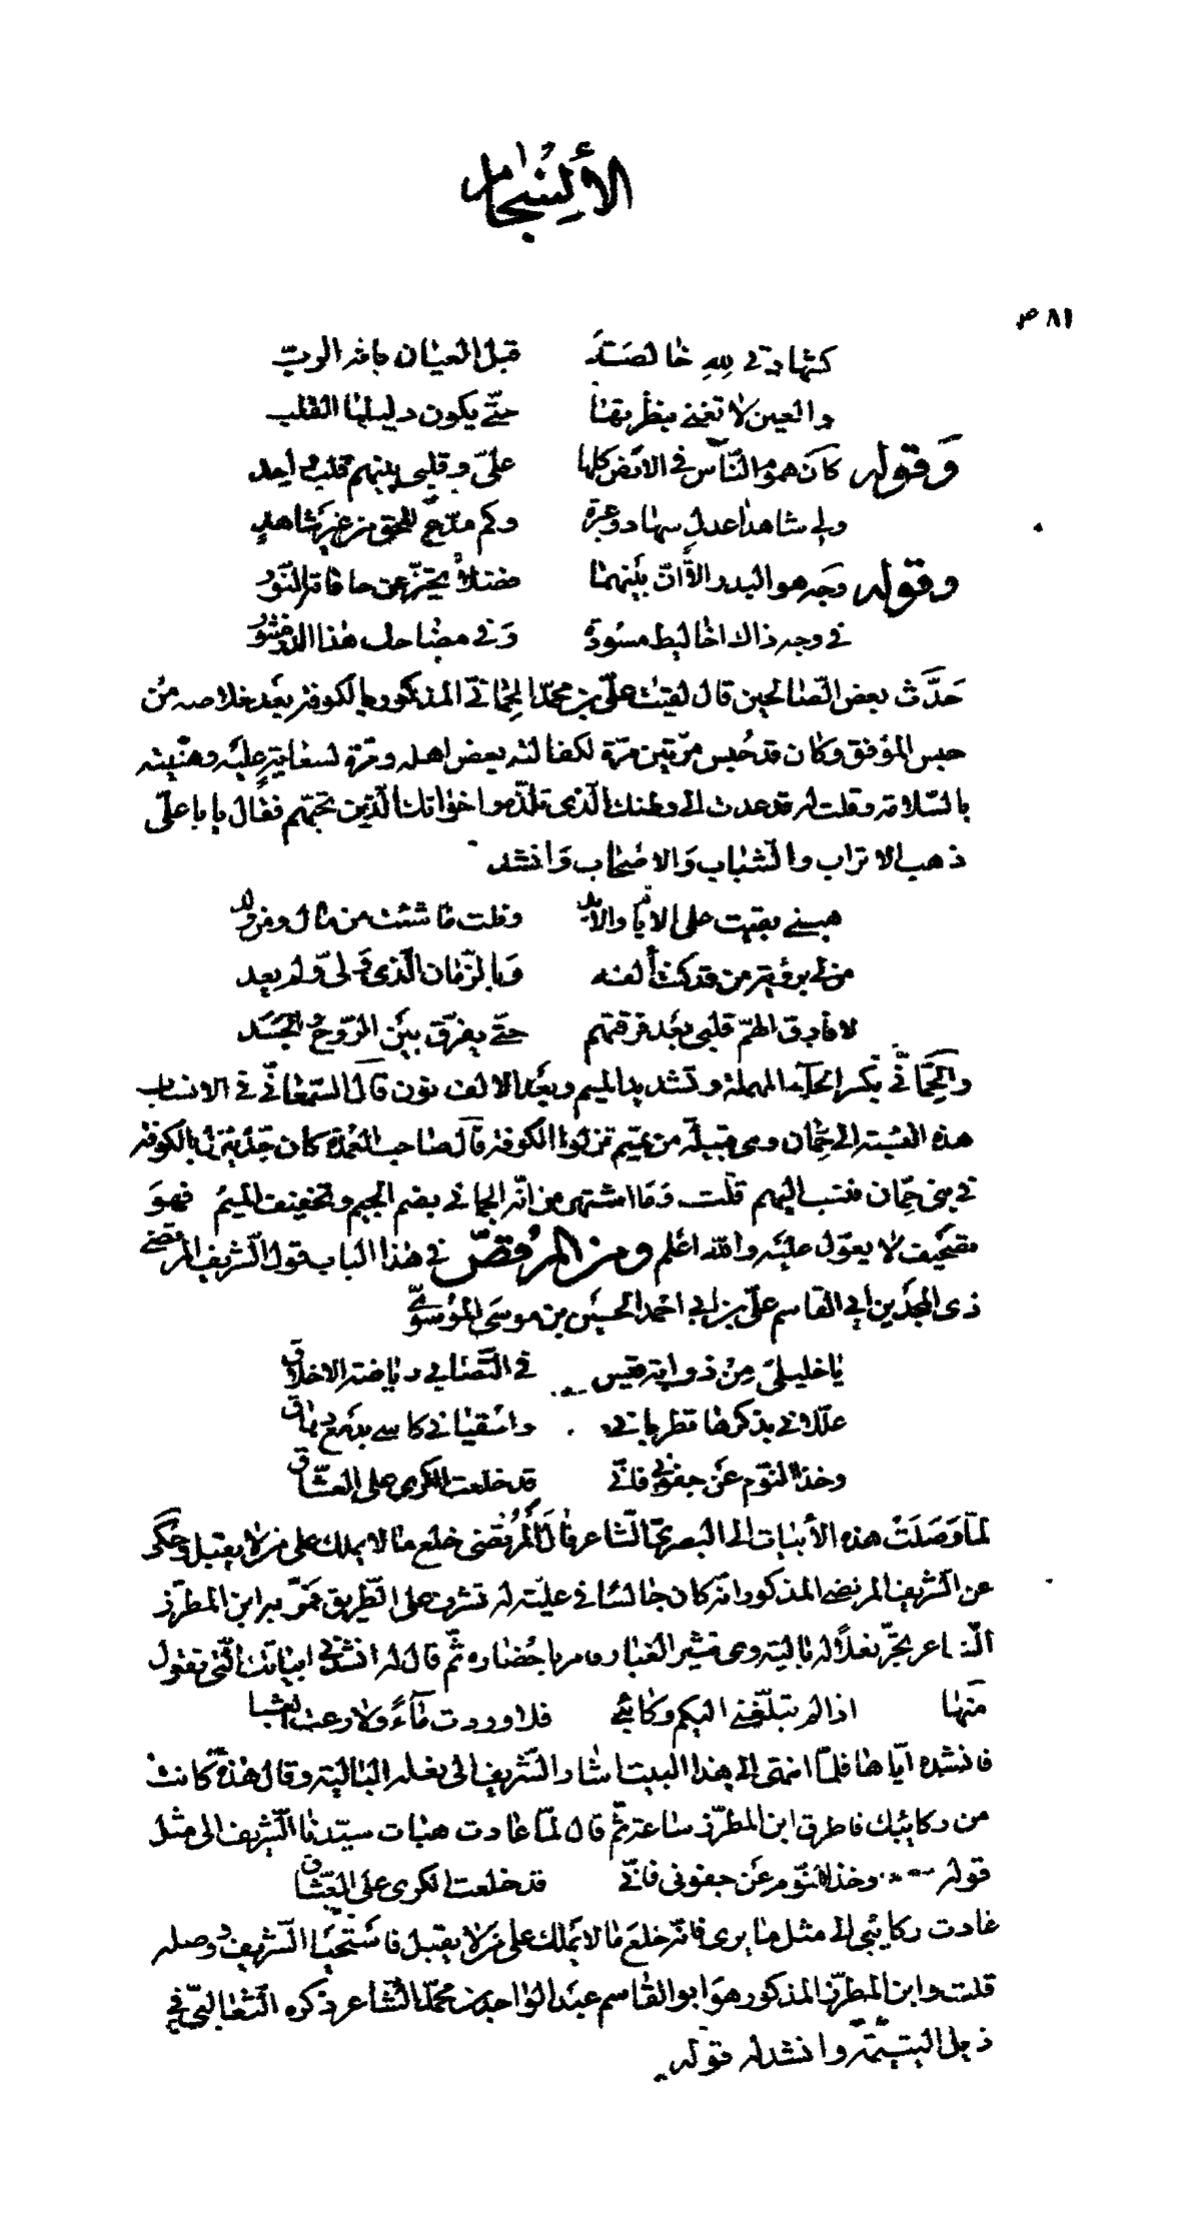 الأنسجام
٨١ ص
كشهادتي لله خالصة قبل العيان بانه الرب
والعين لا تغني بنظرتها حتّى يكون دليلها القلب
وَقوله كأنّ هموم النّاس في الارض كلها عليّ وقلبي بينهم قلب واحد
ولي شاهدا عدل سهاد وعبرة وكم مدّع للحق من غير شاهدٍ
وقوله وجه هو البدر الاّ انّ بينهما فضلاً تحيّر عن حافاته النّور
في وجه ذاك اخاليط مسوّدة وَفي مضاحك هذا الدر منثور
حَدَّث بعض الصّالحين قال لقيت عليّ بن محمّد الحِمّاني المذكور بالكوفة بعَد خلاصه مِن
حبس الموَفق وكان قد حُبس مرّتين مرّة لكفالته بعض اهله ومرّة لسعايةٍ عليْه وهنّيته
بالسّلامة وقلت له قد عدت الى وطنك الّذى تلذّه واخوانك الّذين تحبّهم فقال يابا علىّ
ذهب الاتراب والشّباب وَالاصْحاب وَانشد
هبني بقيت على الايّام والأبد ونلت ما شئت من مال ومن ولد
من لي برؤية من قد كنت ألفه وَبالزّمان الّذى وَلّى وَلم يعد
لا فارق الهمّ قلبي بعْد فرقتهم حتّى يفرّق بيْن الرّوح والجسَد
والحِمّاني بكسر الحآء المهملة وتشديد الميم وبعْد الالف نون قال السّمعاني في الانساب
هذه النسبة الى حِمّان وهي قبيلة من تميم نزلوا الكوفة قال صاحب العُمدة كان جدّه ينزل بالكوفة
في بني حِمّان فنسب اليهم قلت وَمَا اشتهر من انّه الجماني بضم الجيم وتخفيف الميم فهوَ
تصحيف لا يعوّل عليْه والله اعْلم ومن المرُقصّ في هذا الباب قول الشّريف المرتضى
ذى المجدَين ابي القاسم عليّ بن ابي احمد الحسَين بن موسَى الموُسَويّ
يا خليليّ مِن ذوابة قيس في التّصابي رياضة الاخلاق
علّلاني بذكرها تطرباني واسْقياني كاسي بدمع دهاق
وخذا النّوم عَن جفوني فانّي قد خلعت الكرى على العشّاق
لمّا وَصَلَتْ هذه الأبيات الى البصروىّ الشّاعر قالَ المُرتضى خلع ما لا يملك على من لا يقبل وحكى
عن الشّريف المرتضى المذكور انّه كان جالسًا في عليّة له تشرف على الطّريق فمرّ به ابن المطرّز
الشاعر يجرّ نعلًا له بالية وهى تثير الغبار فامر باحضاره ثمّ قال له انشدني ابياتك الّتى تقول
منها اذا لم تبلّغني اليكم ركائبي فلا وردت مآءً ولا رعت العشبا
فانشده ايّاها فلمّا انتهى الى هذا البيت اشار الشّريف الى نعله البالية وقال هذه كانت
من ركائبك فاطرق ابن المطرّز ساعة ثمّ قال لمّا عادت هبات سيّدنا الشّريف الى مثل
قوله وخذا النّوم عَن جفونى فانّي قد خلعت الكرى على العشّاق
عادت ركائبي الى مثل ما يرى فانّه خلعَ ما لا يَملك على من لا يقبل فاسْتَحيَا الشّريف ووصله
قلت وابن المطرّز المذكور هوَ ابو القاسم عبْد الواحد بن محمّد الشّاعر ذكره الثّعالبيّ في
ذيل اليتيمة وانشد له قوله